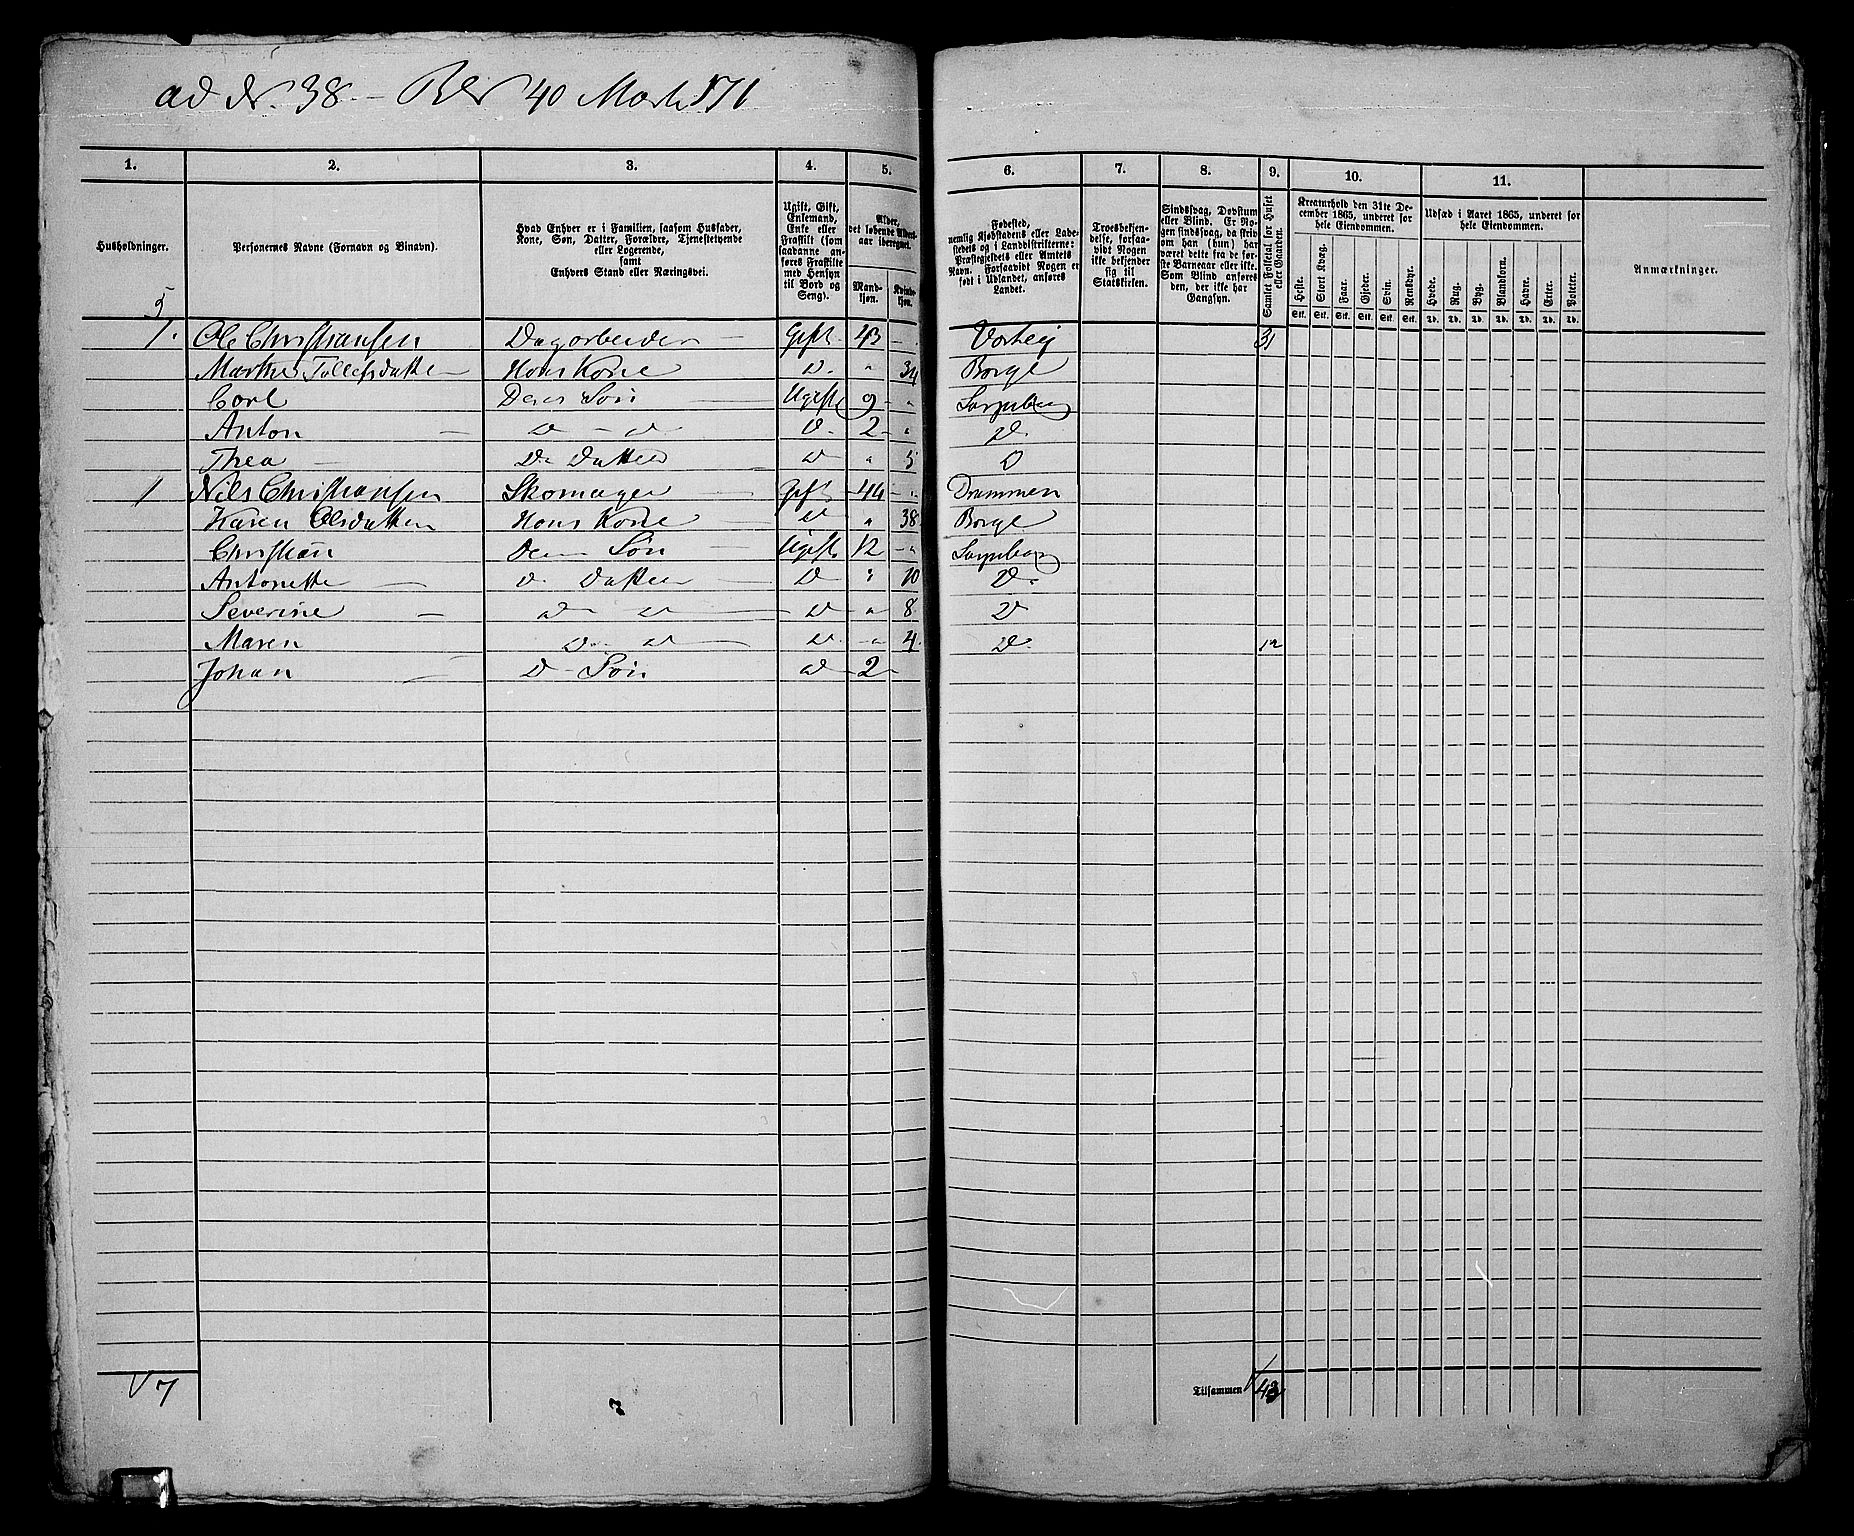 ad Nr. 38 – 40 Matr 171
1. 2. 3. 4. 5. 6. 7. 8. 9. 10. 11.
Husholdninger.
Personernes Navne (Fornavn og Binavn).
Hvad Enhver er i Familien, saasom Husfader, Kone, Søn, Datter, Forældre, Tjenestetyende eller Logerende, samt Enhvers Stand eller Næringsvei.
Ugift, Gift, Enkemand, Enke eller Fraskilt (som saadanne anføres Fraskilte med Hensyn til Bord og Seng).
Alder, det løbende Aldersaar iberegnet.
Mandkjøn. Kvindekjøn.
Fødested, nemlig Kjøbstadens eller Ladestedets og i Landdistrikterne: Præstegjeldets eller Amtets Navn. Forsaavidt Nogen er født i Udlandet, anføres Landet.
Troesbekjendelse, forsaavidt Nogen ikke bekjender sig til Statskirken.
Sindssvag, Døvstum eller Blind. Er Nogen sindssvag, da skriv om han (hun) har været dette fra de første Barneaar eller ikke. Som Blind anføres den, der ikke har Gangsyn.
Samlet Folketal for Huset eller Gaarden.
Kreaturhold den 31te December 1865, underet for hele Eiendommen.
Heste. Stort Kvæg. Faar. Gjeder. Svin. Rensdyr.
Stk. Stk. Stk. Stk. Stk. Stk.
Udsæd i Aaret 1865, underet for hele Eiendommen.
Hvede. Rug. Byg. Blandkorn. Havre. Erter. Poteter.
Td. Td. Td. Td. Td. Td. Td.
Anmærkninger.
5
1. Ole Christiansen Dagarbeider Gift 43 Varteig 31
Marthe Tollefsdatter Hans Kone D. " 34 Borge
Carl Deres Søn Ugift 9 " Sarpsborg
Anton D – D D. 2 " D.
Thea D Datter D " 5 D
1 Nils Christiansen Skomager Gift 44 " Drammen
Karen Olsdatter Hans Kone D " 38 Borge
Christian Deres Søn Ugift 12 " Sarpsborg
Antonette D. Datter D " 10 D.
Severine D D D " 8 D
Maren D D D " 4 D. 12
Johan D – Søn D 2
7
Tilsammen 43